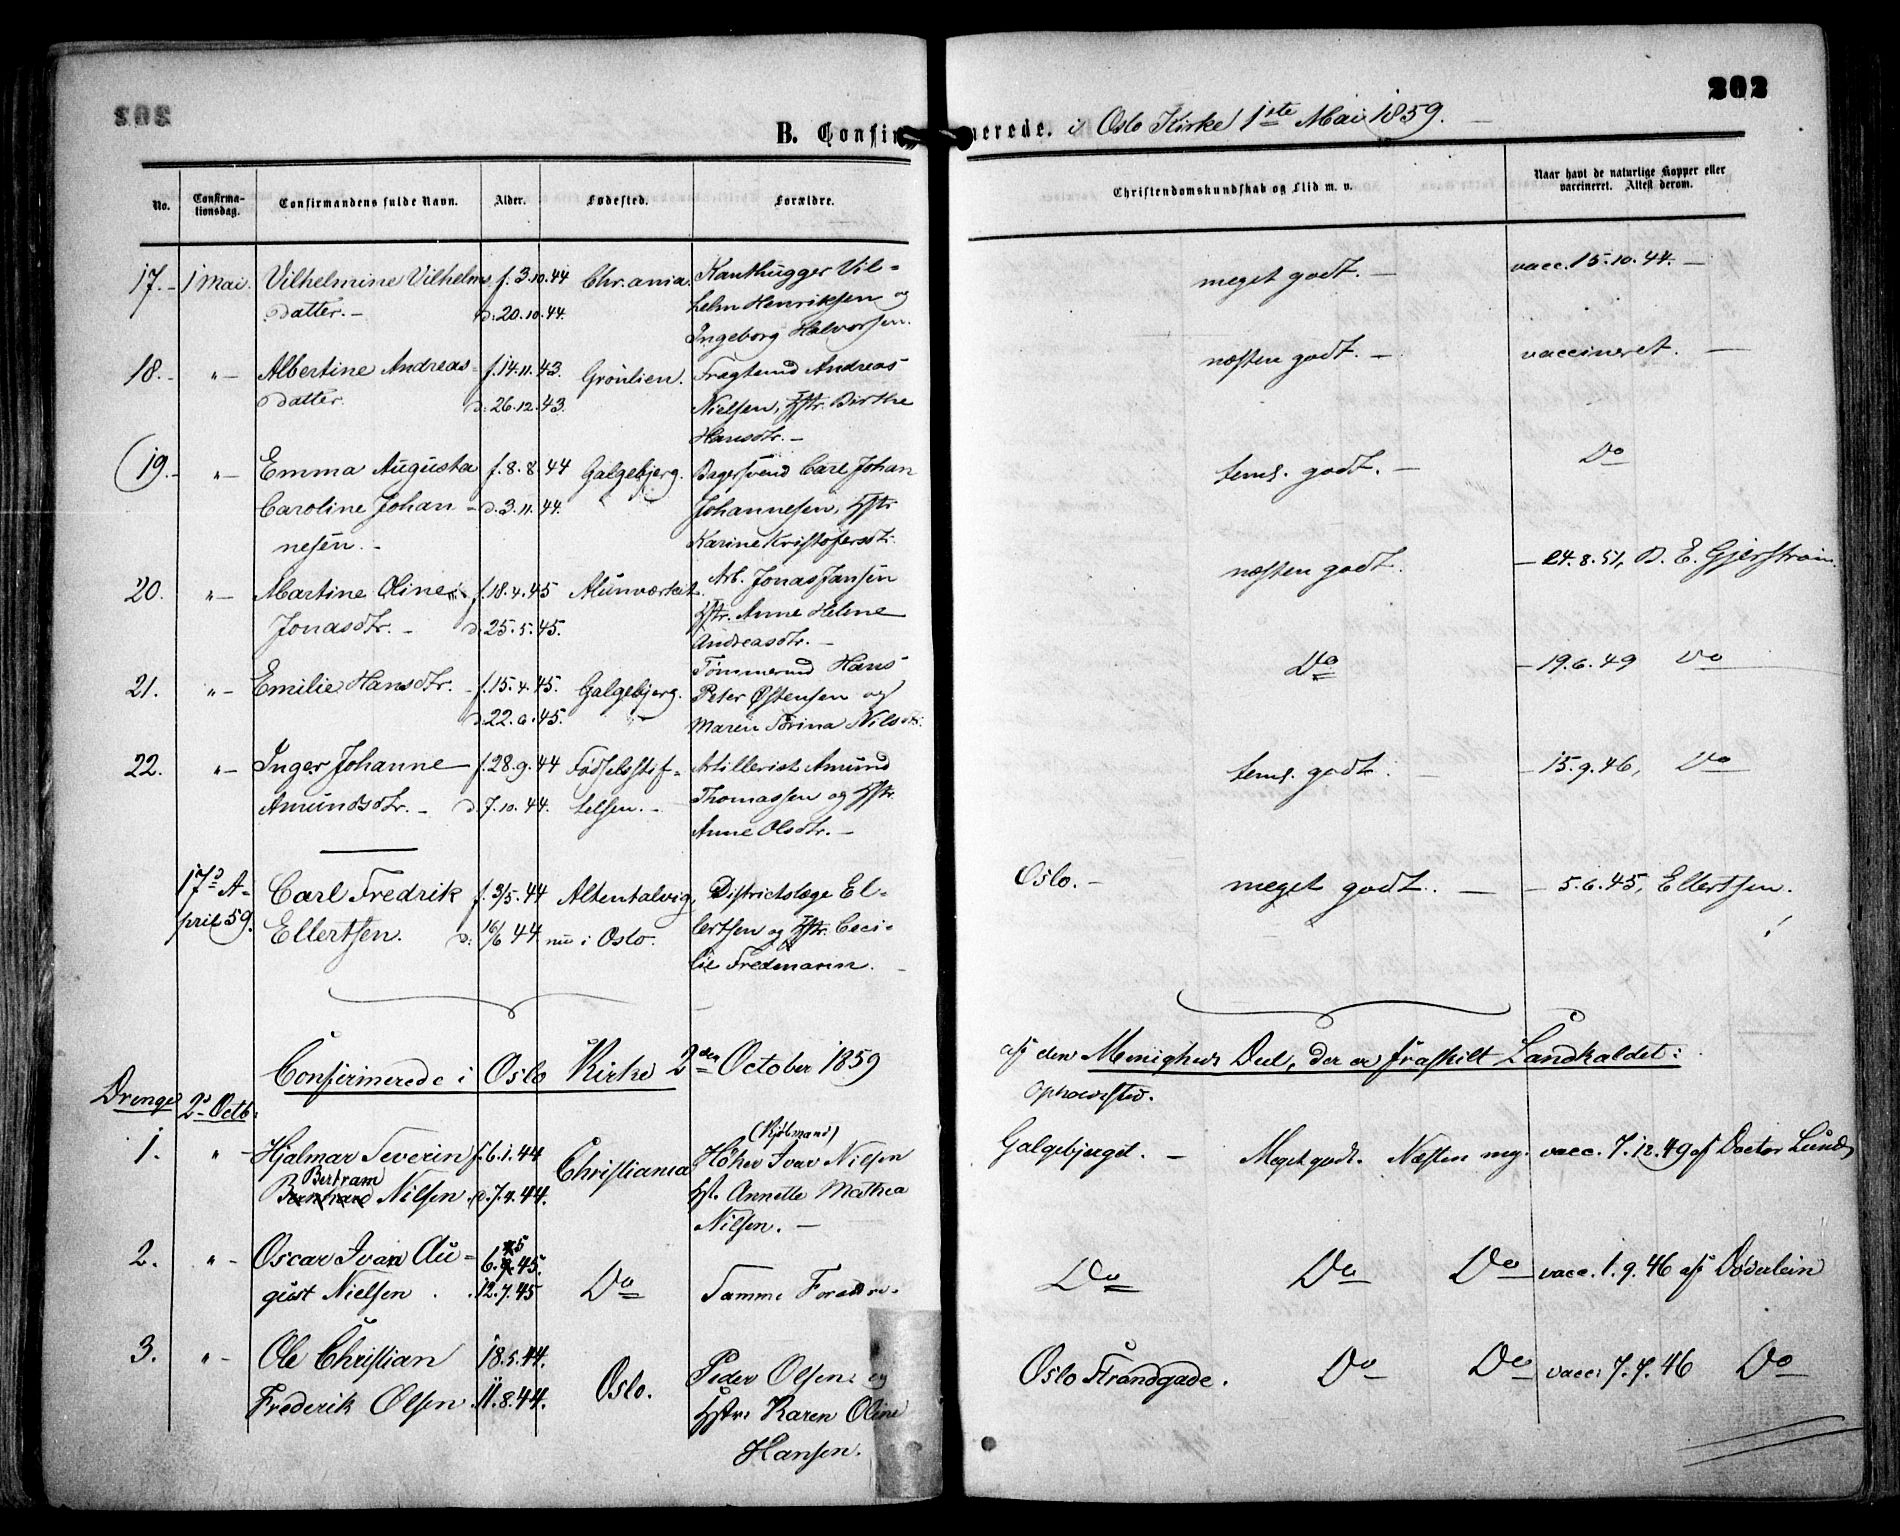 202
B. Confirmerede. i Oslo Kirke 1ste Mai 1859.
No. Confirmationsdag. Confirmandens fulde Navn. Alder. Fødested. Forældre. Christendomskundskab og Flid m. v. Naar havt de naturlige Kopper eller vaccineret. Attest derom.
17. 1 Mai. Vilhelmine Vilhelms f. 3.10.44 Chr.ania. Kanthugger Vil- meget godt. vacc. 15.10.44.
datter. d. 20.10.44. helm Henriksen og
Ingeborg Halvorsen.
18. " Albertine Andreas f. 14.11.43. Grønlien. Fragtemd Andreas næsten godt. vaccineret.
datter. d. 26.12.43. Nielsen, Hstr. Birthe
Hansdtr.
19. " Emma Augusta f. 8.8.44 Galgebjerg. Bagersvend Carl Johan teml. godt. Do
Caroline Johan d. 3.11.44. Johannesen, Hstr
nesen. Karine Kristofersdtr.
20. " Martine Oline f. 18.4.45 Alunværket. Arb. Jonas Jansen næsten godt. 24.8.51, D. E. Gjerstrøm.
Jonasdtr. d. 25.5.45. Hstr. Anne Helene
Andreasdtr.
21. " Emilie Hansdtr. f. 15.4.45. Galgebjerg. Tømmermd Hans Do 19.6.49 Do
d. 22.6.45. Peter Østensen og
Maren Nilsdtr.
22. " Inger Johanne f. 28.9.44 Fødselsstif- Artillerist Amund teml. godt. 15.9.46, Do
Amundsdtr. d. 7.10.44. telsen. Thomassen og Hstr.
Anne Olsdtr.
17d A- Carl Fredrik f. 3/5.44 Altentalvig, Districtslæge El- Oslo. meget godt. 5.6.45, Ellertsen.
pril 59. Ellertsen. d. 16/6 44. nu i Oslo. lertsen og Hstr. Ceci-
lie Fredmann.
Confirmerede i Oslo Kirke 2den October 1859 af den Menigheds Deel, der er fraskilt Landkaldet:
Drenge 2d Octb: Opholdsted.
1. " Hjalmar Severin f. 6.1.44 Christiania (Kjøbmand) Galgebjerget. Meget godt. Næsten mg. vacc. 7.12.49 af Doctor Lund
Bertram Nilsen d. 7.4.44. Høker Ivar Nilsen
Hst. Annette Mathea
Nilsen.
2. " Oscar Ivan Au- 6.5.45. Do Samme Forældre. Do Do Do vacc. 1.9.46 af Døderlein
gust Nielsen. 12.7.45
3. " Ole Christian 18.5.44. Oslo. Peder Olsen og Oslo Strandgade. Do Do vacc: 7.7.46 Do
Frederik Olsen 11.8.44. Hstr. Karen Oline
Hansen.